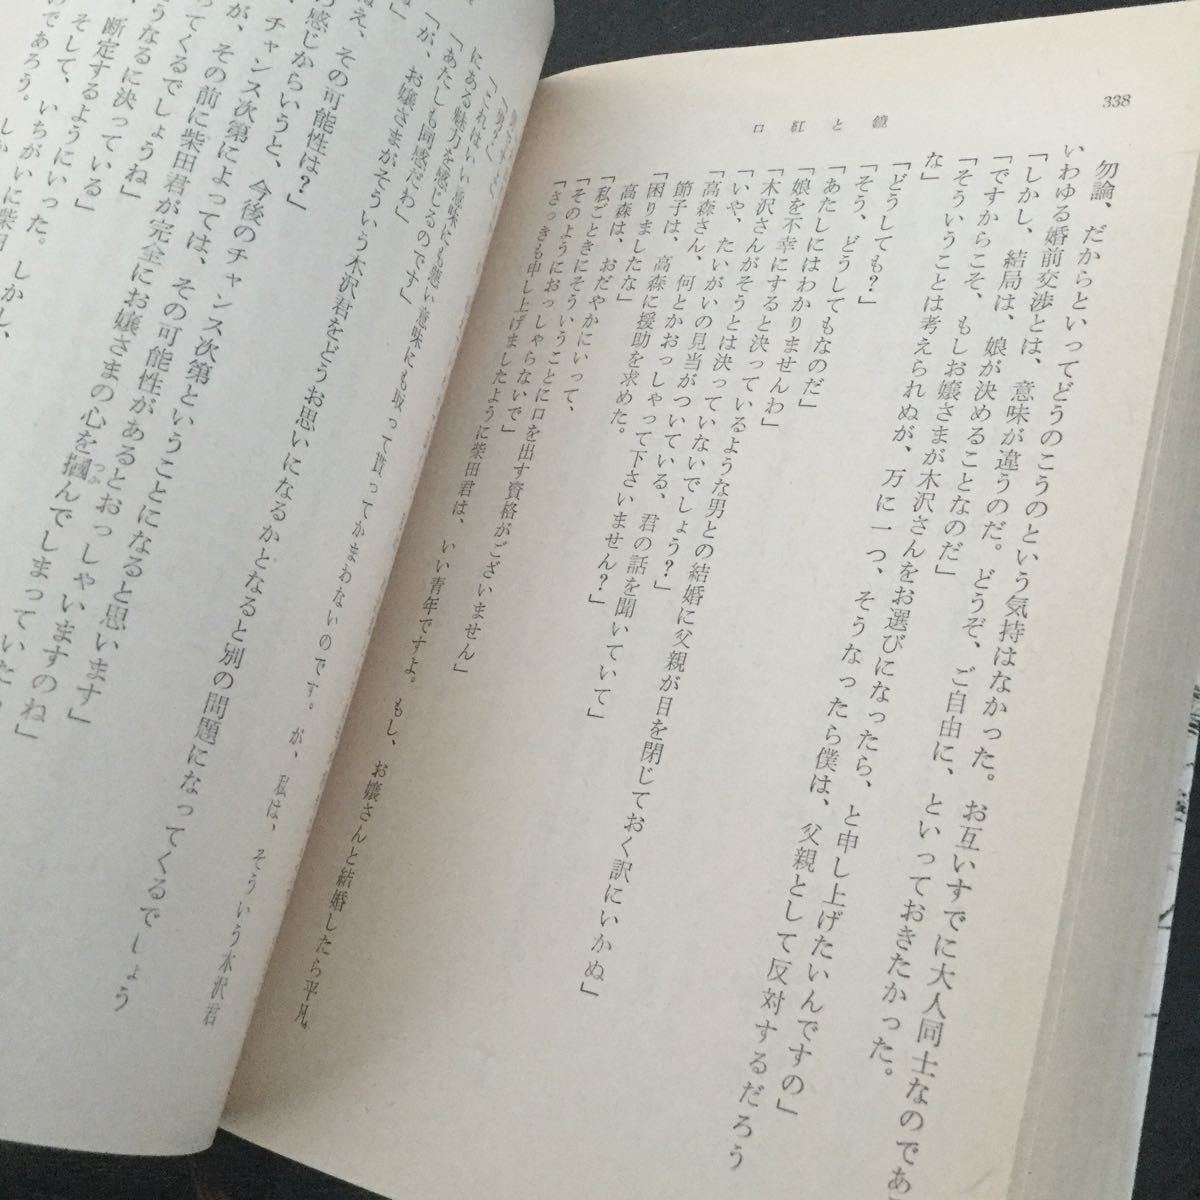 338
口紅と鏡
勿論、だからといってどうのこうのという気持はなかった。お互いすでに大人同士なのであ
いわゆる婚前交渉とは、意味が違うのだ。どうぞ、ご自由に、といっておきたかった。
「しかし、結局は、娘が決めることなのだ」
「ですからこそ、もしお嬢さまが木沢さんをお選びになったら、と申し上げたいんですの」
「そういうことは考えられぬが、万に一つ、そうなったら僕は、父親として反対するだろう
な」
「どうしても？」
「そう、どうしてもなのだ」
「あたしにはわかりませんわ」
「娘を不幸にすると決っているような男との結婚に父親が目を閉じておく訳にいかぬ」
「木沢さんがそうとは決っていないでしょう？」
「いや、たいがいの見当がついている、君の話を聞いていて」
「高森さん、何とかおっしゃって下さいません？」
節子は、高森に援助を求めた。
「困りましたな」
高森は、おだやかにいって、
「私ごときにそういうことに口を出す資格がございません」
「そのようにおっしゃらないで」
「さっきも申し上げましたように柴田君は、いい青年ですよ。もし、お嬢さんと結婚したら平凡
「これはいい意味にも悪い意味にも取って貰ってかまわないのです。が、私は、そういう木沢君
にある魅力を感じるのです」
「あたしも同感だわ」
「が、お嬢さまがそういう木沢君をどうお思いになるかとなると別の問題になってくるでしょう
ね」
ねえ、その可能性は？」
の感じからいうと、今後のチャンス次第ということになると思います」
、チャンス次第によっては、その可能性があるとおっしゃいますのね」
が、その前に柴田君が完全にお嬢さまの心を摑んでしまっていた
ってくるでしょうね」
うなるに決っている」
、断定するようにいった。しかし、
そして、いちがいに柴田
のであろう。しか